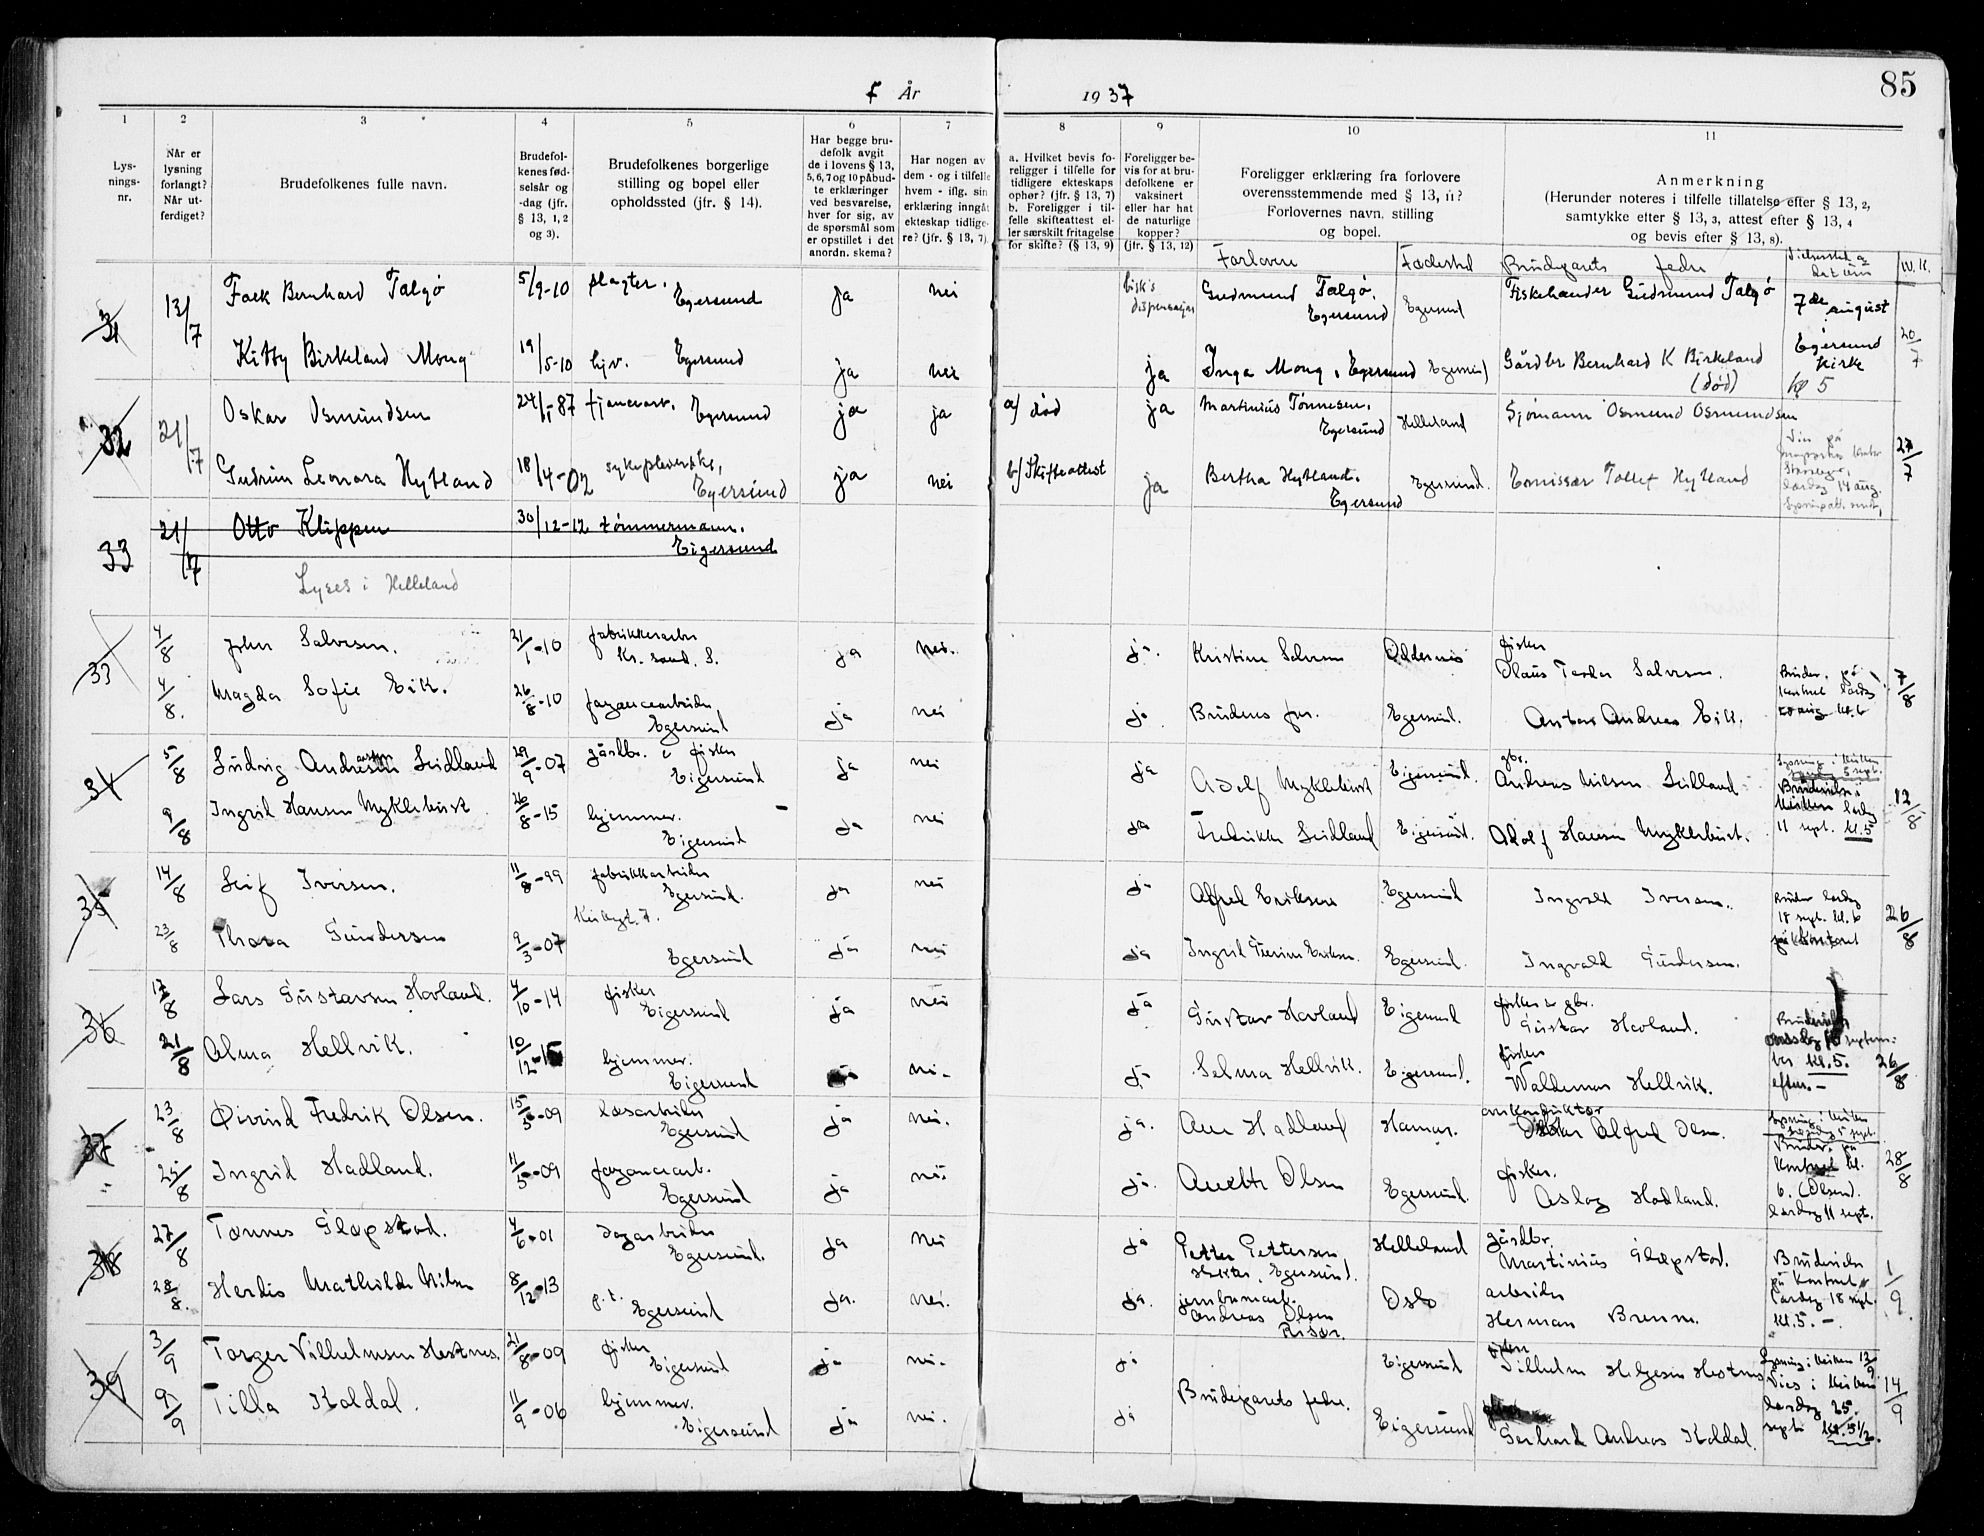 85
År 1937
1 2 3 4 5 6 7 8 9 10 11
Lys-
nings-
nr.
Når er
lysning
forlangt?
Når ut-
ferdiget?
Brudefolkenes fulle navn.
Brudefol-
kenes fød-
selsår og
-dag (jfr.
§ 13, 1, 2
og 3).
Brudefolkenes borgerlige
stilling og bopel eller
opholdssted (jfr. § 14).
Har begge bru-
defolk avgit
de i lovens § 13,
5, 6, 7 og 10 påbud-
te erklæringer
ved besvarelse,
hver for sig, av
de spørsmål som
er opstillet i det
anordn. skema?
Har nogen av
dem - og i tilfelle
hvem - iflg. sin
erklæring inngåt
ekteskap tidlige-
re? (jfr. § 13, 7).
a. Hvilket bevis fo-
religger i tilfelle for
tidligere ekteskaps
ophør? (jfr. § 13, 7)
b. Foreligger i til-
felle skifteattest el-
ler særskilt fritagelse
for skifte? (§ 13, 9)
Foreligger be-
vis for at bru-
defolkene er
vaksinert
eller har hat
de naturlige
kopper?
(jfr. § 13, 12)
Foreligger erklæring fra forlovere
overensstemmende med § 13, 11?
Forlovernes navn, stilling
og bopel.
Anmerkning
(Herunder noteres i tilfelle tillatelse efter § 13, 2,
samtykke efter § 13, 3, attest efter § 13, 4
og bevis efter § 13, 8).
Forlovere Fødested Brudeparets fedre
31 13/7 Falk Bernhard Talgø 5/9-10 slagter. Egersund ja nei dispensasjon Gudmund Talgø. Egersund Egersund Fiskehandler Gudmund Talgø 7de august
Kitty Birkeland Mong 19/5-10 hjv. Egersund ja nei ja Inga Mong, Egersund Egersund Gårdbr Bernhard K Birkeland (død) Egersund kirke kl 5 20/7
32 21/7 Oskar Osmundsen 24/1-87 Egersund ja ja a/ død ja Martinius Tønnesen. Egersund Helleland Sjømann Osmund Osmundsen
Gudrun Leonora Hytland 18/4-02 sykepleierske, Egersund ja nei b/ Skifteattest ja Bertha Hytland. Egersund Egersund. Emissær Tollef Hytland lørdag 14 aug. 27/7
33 21/7 Otto Klippen 30/12-12 tømmermann. Eigersund
Lyses i Helleland
33 4/8 John Salvesen. 21/1-10 fabrikkarb Kr. sand. S. ja nei. ja. Kristine Salvesen Oddernes fisker Olaus Teodor Salvesen.
4/8. Magda Sofie Eik. 26/8-10 fayancearbeider, Egersund ja nei ja Brudens far. Egersund. Anton Andreas Eik. 7/8
34 5/8 Ludvig Andreassen Leidland 29/9-07 gårdbr. i fisker Eigersund ja nei ja Adolf Myklebust Eigersund. gbr. Andreas Nilsen Leidland Lysning i kirken 5 sept.
9/8 Ingrid Hansen Myklebust 26/8-15 hjemmev. Eigersund ja nei ja Fredrikke Leidland Eigersund. Adolf Hansen Myklebust. Brudevielse i kirken lørdag 11 sept. kl. 5 12/8
35 14/8 Leif Iversen. 11/8-99 fabrikkarbeider Egersund. ja nei ja Alfred Eriksen Egersund Ingvald Iversen.
23/8 Thora Gundersen 9/3-07 Egersund ja nei ja Ingrid Eriksen. Egersund. Ingvald Gundersen. Bruder lørdag 18 sept. kl. 6 på kontoret 26/8
36 17/8 Lars Gustavsen Hovland. 4/10-14 fisker Eigersund ja nei ja Gustav Hovland Eigersund fisker og gbr. Gustav Hovland.
21/8 Alma Hellvik. 10/12-15 hjemmev. Eigersund ja nei. ja Selma Hellvik. Eigersund. fisker Waldemar Hellvik. kl. 5. 26/8
37 23/8 Øivind Fredrik Olsen. 15/5-09 Egersund ja nei. ja. Ane Hadland Hamar. Alfred Olsen. Lysning i kirken 5 sept.
25/8 Ingrid Hadland. 11/5-09 fayancearb. Egersund ja nei ja. Anette Olsen Egersund. fisker. Aslag Hadland. kontoret kl. 6. (Olsen). lørdag 11 sept. 28/8
38 27/8 Tønnes Glapstad. 4/6-01 Egersund. ja nei ja Petter Pettersen Egersund. Helleland gårdbr. Martinius Glapstad.
28/8. Herdis Mathilde Nilsen 8/12-13 p.t. Egersund ja. nei. ja. Andreas Olsen Risør. Oslo arbeider Herman på kontoret lørdag 18 sept. kl. 5. 1/9
39 3/9 Torger Vilhelmsen Hestnes. 21/8-09 fisker Eigersund ja nei. ja Eigersund Vilhelm Helgesen Hestnes Lysning i kirken 12/9
9/9 Tilla Koldal. 11/9-06 hjemmev. Eigersund ja nei. ja Brudeparets fedre. Eigersund Gerhard Andreas Koldal. Vies i kirken lørdag 25. sept. kl. 5 1/2. 14/9